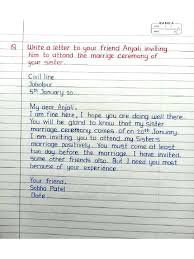 Q) Write a letter to your friend Anjali inviting
him to attend the marrige ceremony of
your sister.
Civil line
Jabalpur
5th January 20...
My dear Anjali,
I am fine here, I hope you are doing well there.
You will be gland to know that my sister
marriage ceremony comes of on 20th January.
I am inviting you to attend my Sisters
marriage positively. You must come at least
two day before the marriage. I have invited
some other friends also. But I need you most
because of your experience.
Your friend,
Sobha Patel
Date